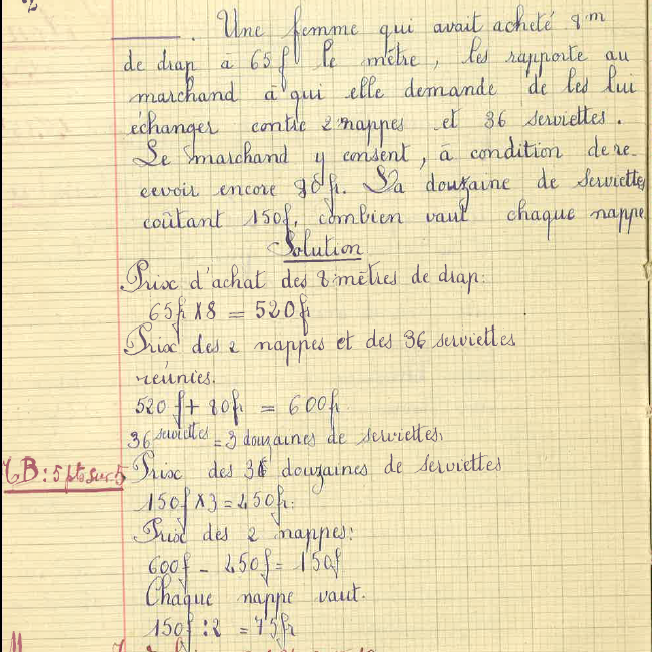 2
. Une femme qui avait acheté 8m
de drap à 65f le mètre, les rapporte au
marchand à qui elle demande de les lui
échanger contre 2 nappes et 36 serviettes.
Le marchand y consent, à condition de re-
cevoir encore 80fr. La douzaine de serviettes
coûtant 150f, combien vaut chaque nappe
Solution
Prix d'achat des 8 mètres de drap:
65fr x 8 = 520fr
Prix des 2 nappes et des 36 serviettes
réunies.
520f + 80fr = 600fr
36 serviettes = 3 douzaines de serviettes.
TB: 5 pts sur 5
Prix des 3 douzaines de serviettes
150f x 3 = 450fr.
Prix des 2 nappes:
600f - 450f = 150f
Chaque nappe vaut.
150f : 2 = 75fr